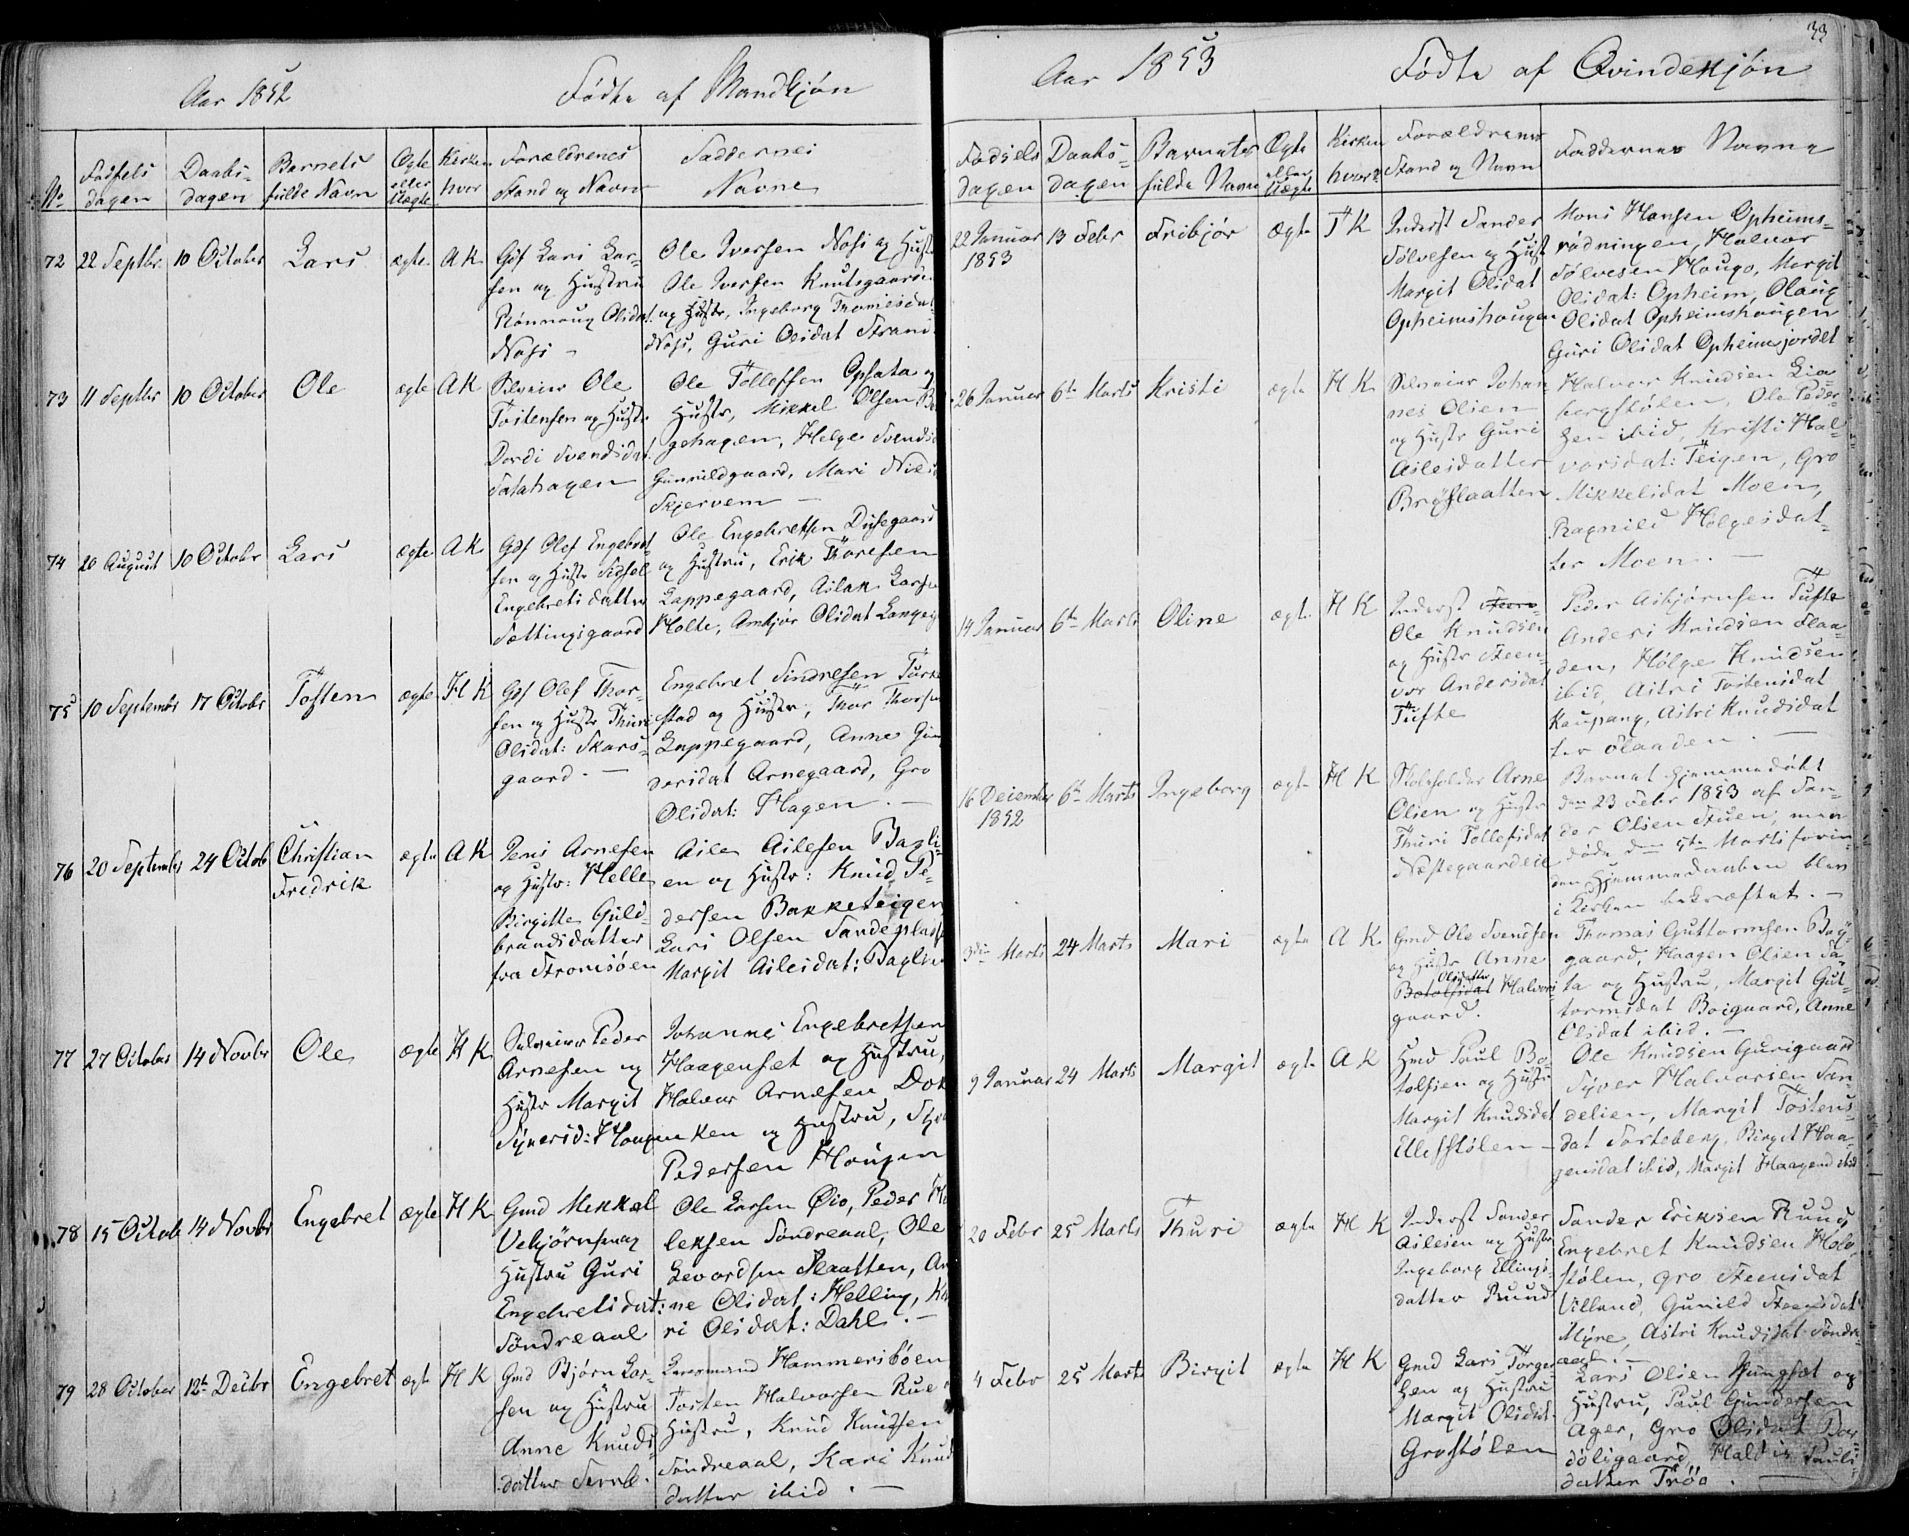 Aar 1852
Fødte af Mandkjøn
No
Fødsels dagen
Daabs- dagen
Barnets fulde Navn
Ægte eller Uægte
Kirken hvor
Forældrenes Stand og Navn
Faddernes Navne
72
22 Septbr
10 October
Lars
ægte
A K
Gbf Lars Lar-
sen og Hustru
Rønnoug Olsdat
Noss
Ole Iversen Noss og Hustr
Ole Iversen Knutsgaarden
og Hustr, Ingeborg Thomesdat
Noss, Guri Olsdat Strand
73
11 Septbr
10 October
Ole
ægte
A K
Selveier Ole
Tostensen og Hustr
Dordi Svendsdat
Satahagen
Ole Tollefsen Opsata og
Hustr, Mikkel Olsen
gehagen, Helge Svends
Gunnildgaard, Mari Nils
Skjervem
74
20 August
10 Octobr
Lars
ægte
A K
Gbf Olef Engebret-
sen og Hustr Sidsel
Engebretsdatter
Sættingsgaard
Ole Engebretsen Dysegaard
og Hustru, Erik Thoresen
Lappegaard, Aslak Larsen
Holte, Ambjør Olsdat
75
10 September
17 Octobr
Tosten
ægte
H K
Gbf Olef Thor-
sen og Hustr Thuri
Olsdat: Skars-
gaard.
Engebret Sindresen
stad og Hustr, Thor Thorsen
Lappegaard, Anne Gun
dersdat Arnegaard, Gro
Olsdat: Hagen.
76
20 September
24 Octob
Christian
Fredrik
ægte
A K
Jens Arnesen
og Hustr: Helle
Birgitte Guld-
brandsdatter
fra Strømsøen
Asle Aslesen Bagli-
en og Hustr: Knud Pe-
dersen Bakketeigen
Lars Olsen Sandeplads
Margit Aslesdat: Baglien
77
27 October
14 Novbr
Ole
ægte
H K
Selveier Peder
Arnesen og
Hustr Margit
Syversd: Haugen
Johannes Engebretsen
Haagenset og Hustru,
Halvor Arnesen Dok
ken og Hustru,
Pedersen Haugen
78
15 Octob
14 Novbr
Engebret
ægte
H K
Gmd Mekkel
Vebjørnsen og
Hustru Guri
Engebretsdat:
Søndreaal
Ole Larsen Øio, Peder
leksen Søndreaal, Ole
Levordsen Slaatten, An
ne Olsdat: Helling,
ri Olsdat: Dahl.
79
28 October
12te Decbr
Engebret
ægte
H K
Gmd Bjørn Lar-
sen og Hustru
Anne Knuds-
datter
Lensmand Hammersbøen
Tosten Halvorsen Rue
Hustru, Knud Knudsen
Søndreaal, Kari Knuds
datter ibid.
33
Aar 1853
Fødte af Qvindekjøn
Fødsels dagen
Daabs- dagen
Barnets fulde Navn
Ægte eller Uægte
Kirken hvor?
Forældrenes Stand og Navn
Faddernes Navne
22 Januar
1853
13 Febr
Fribjør
ægte
T K
Inderst Sander
Sølvesen og Hustr
Margit Olsdat
Opheimshougen
Mons Hansen Opheims-
rødningen, Halvor
Sølvesen Hougo, Margit
Olsdat: Opheim, Olaug
Olsdat Opheimshougen
Guri Olsdat Opheimsjordet
26 Januar
6te Marts
Kristi
ægte
H K
Selveier Johan-
nes Olsen
og Hustr Guri
Aslesdatter
Brøslaatten
Halvor Knudsen Lia
bergstølen, Ole Peder-
sen ibid, Kristi Hal-
vorsdat: Teigen, Gro
Mikkelsdat Moen,
Ragnild Helgesdat-
ter Moen.
14 Januar
6te Marts
Oline
ægte
H K
Inderst
Ole Knudsen
og Hustr Steen-
vor Andersdat
Tufte
Peder Asbjørnsen Tufte
Anders Knudsen Flaa-
den, Helge Knudsen
ibid, Astri Tostensdat
Kaupang, Astri Knudsdat
ter Flaaden.
16 December
1852
6te Marts
Ingeborg
ægte
H K
Skoleholder Arne
Olsen og Hustr
Thuri Tollefsdat
Næstegaardeie
Barnet hjemmedøbt
den 23 Febr 1853 af San-
der Olsen Stuen, men
døde den 5te Marts forin-
den Hjemmedaaben blev
i Kirken bekræftet.
3die Marts
24 Marts
Mari
ægte
A K
Gmd Ole Svendsen
og Hustr Anne
Olsdatter
Botolfsdat Halvors-
gaard.
Thomas Guttormsen Boi-
gaard, Haagen Olsen Sa-
ta og Hustru, Margit Gut-
tormsdat Boigaard, Anne
Olsdat ibid.
9 Januar
24 Marts
Margit
ægte
A K
Hmd Paul Bo-
tolfsen og Hustr
Margit Knudsdat
Ellefstølen
Ole Knudsen Gurigaard
Syver Halvorsen San
delien, Margit Tostens-
dat Torteberg, Birgit Haa-
gensdat ibid, Margit Haagensd ibid
20 Febr
25 Marts
Thuri
ægte
H K
Inderst Sander
Aslesen og Hustr
Ingeborg Ellings-
datter Ruud
Sander Eriksen Ruud
Engebret Knudsen Hol-
stølen, Gro Steensdat
Villand, Gunild Steensdat
Myre, Astri Knudsdat Søndre
aal.
4 Febr
25 Marts
Birgit
ægte
H K
Gmd Lars Torger
sen og Hustru
Margit Olsdat
Grostølen
Lars Olsen Ljungset og
Hustru, Paul Gundersen
Ager, Gro Olsdat Bor-
døligaard, Haldis Pauls
datter Trøo.